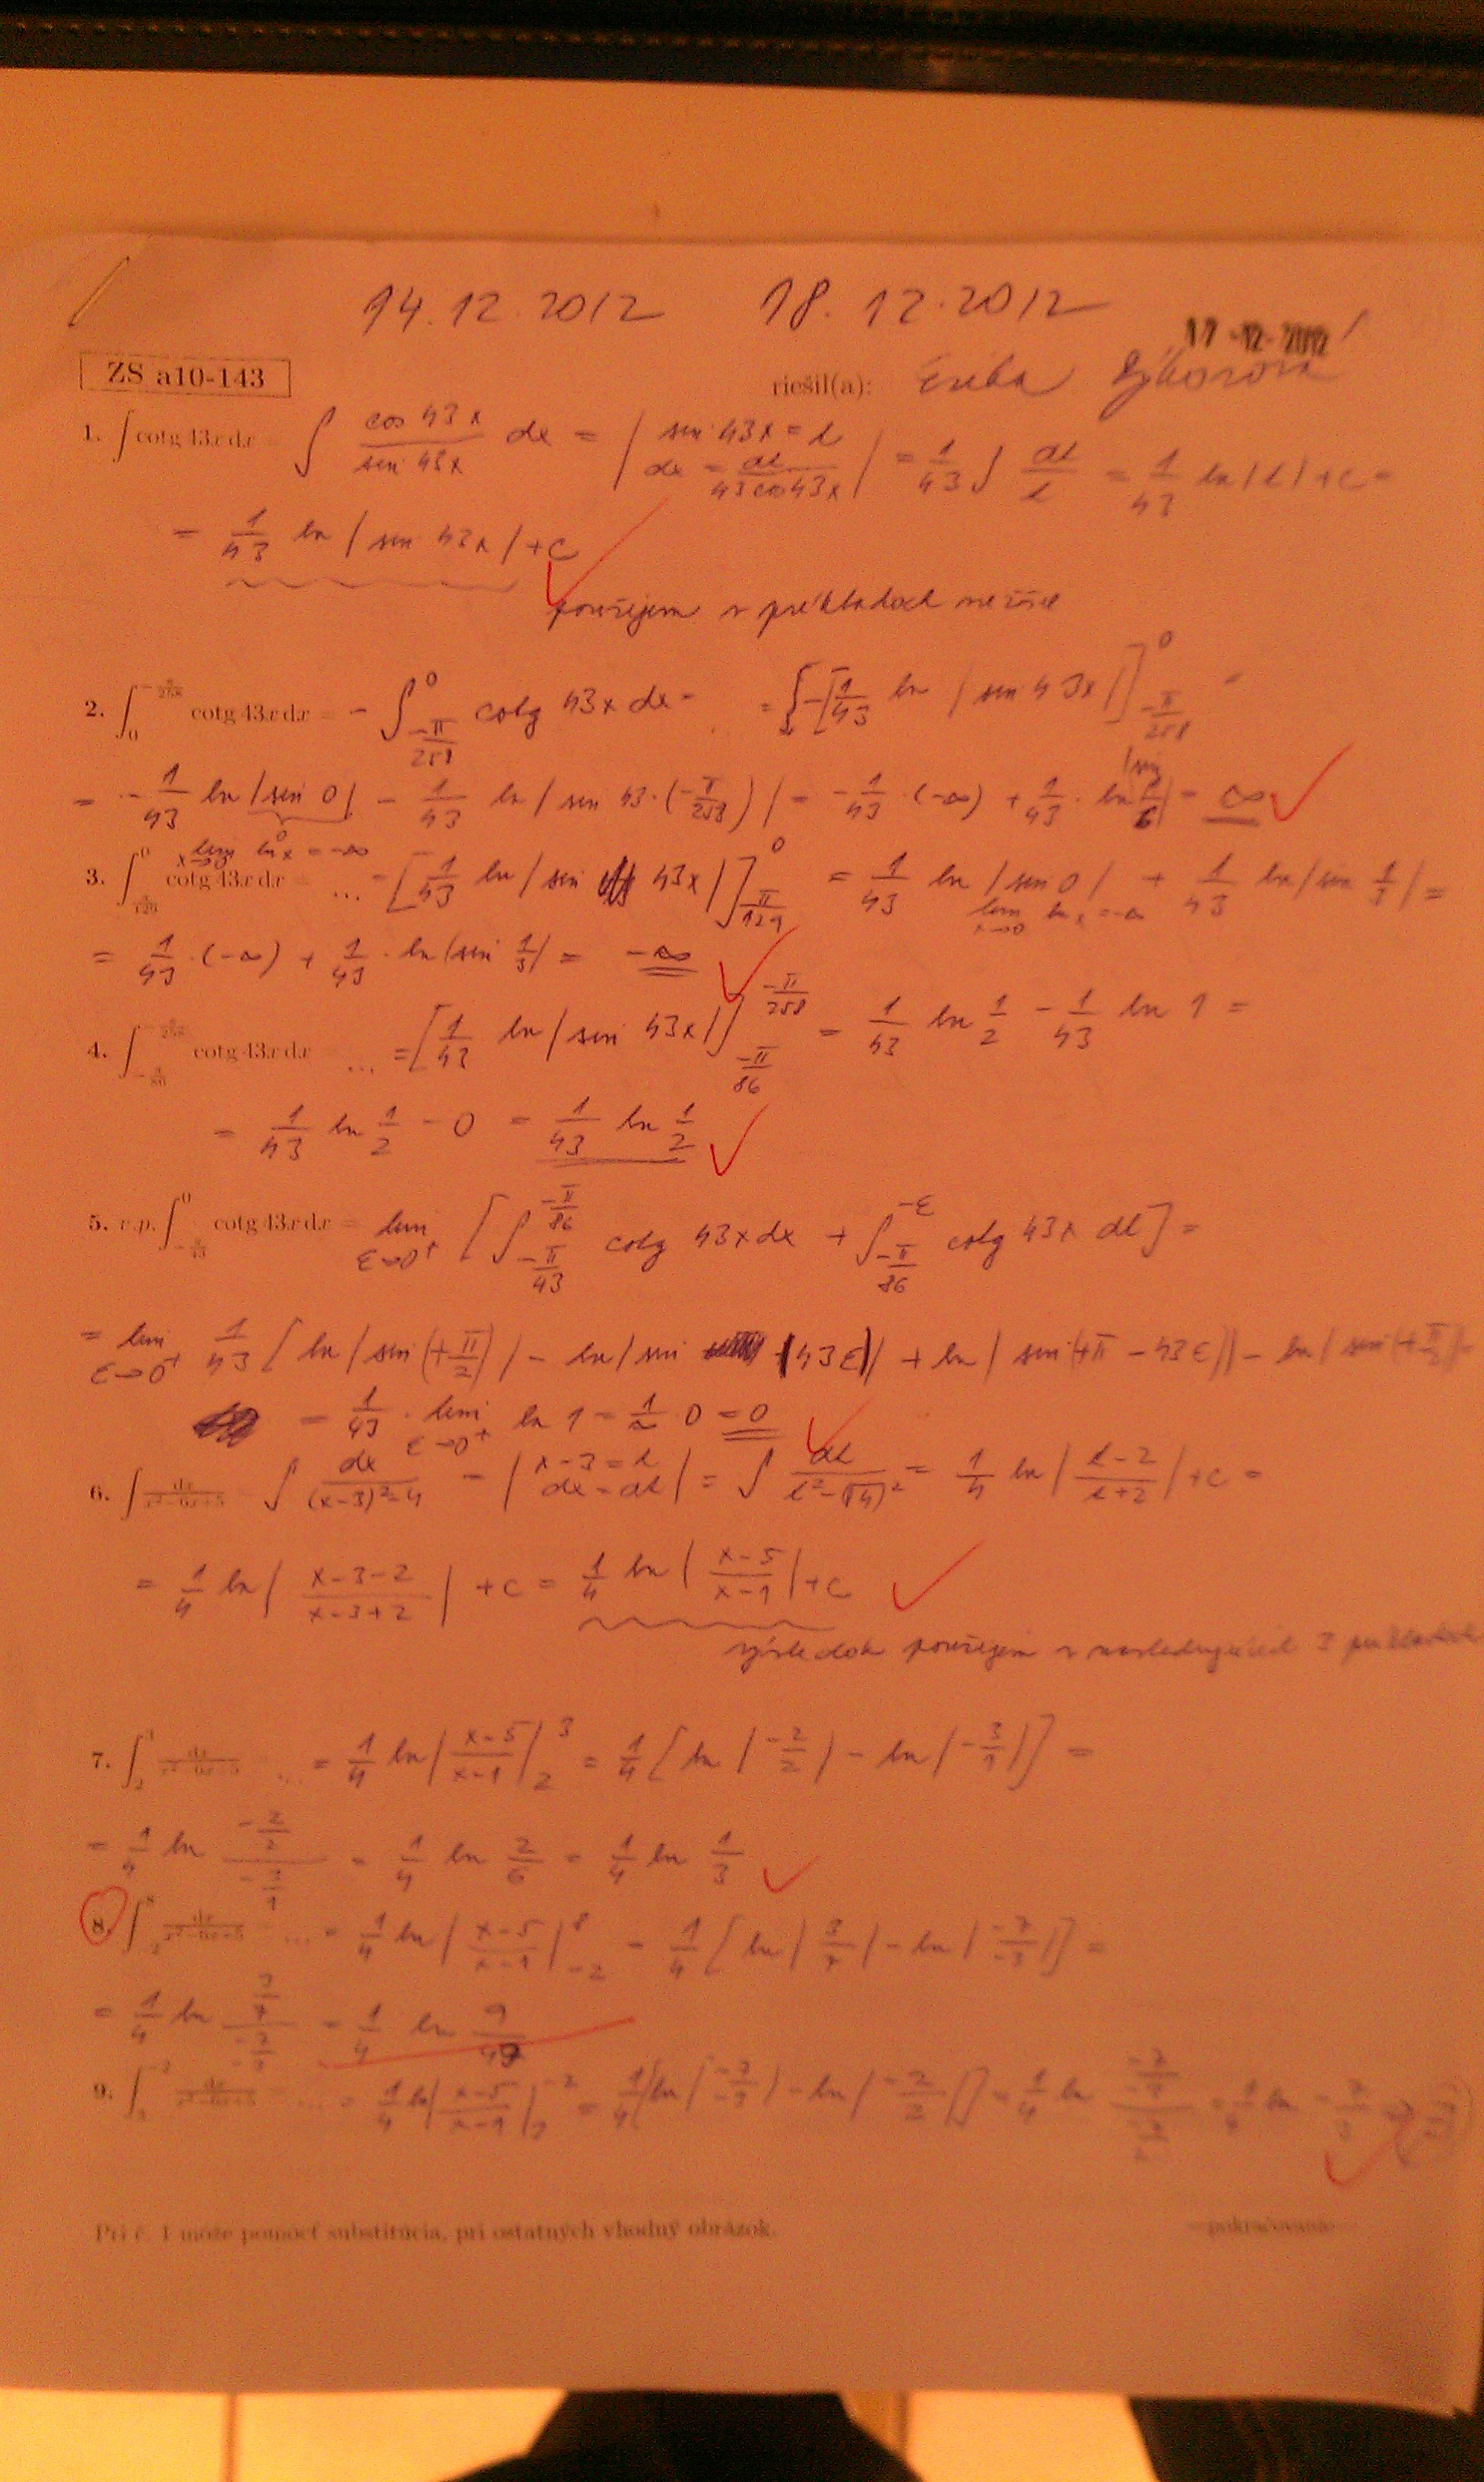 14.12.2012 18.12.2012
17 -12- 2012
ZS a10-143 riešil(a): Erika
1. ∫ cotg 43x dx = ∫ cos 43x / sin 43x dx = | sin 43x = t dx = dt / 43 cos 43x | = 1/43 ∫ dt/t = 1/43 ln |t| + c =
= 1/43 ln | sin 43x | + c
použijem v príkladoch nižšie
2. ∫_0^{-π/258} cotg 43x dx = - ∫_{-π/258}^0 cotg 43x dx = = [-1/43 ln | sin 43x |]_{-π/258}^0 =
= -1/43 ln | sin 0 | - 1/43 ln | sin 43·(-π/258) | = -1/43 · (-∞) + 1/43 · ln | sin π/6 | = ∞
lim_{x→0} ln x = -∞
3. ∫_{π/129}^0 cotg 43x dx = ... = [1/43 ln | sin 43x |]_{π/129}^0 = 1/43 ln | sin 0 | + 1/43 ln | sin 1/3 | =
lim_{x→0} ln x = -∞
= 1/43 · (-∞) + 1/43 · ln | sin 1/3 | = -∞
4. ∫_{-π/86}^{-π/258} cotg 43x dx = ... = [1/43 ln | sin 43x |]_{-π/86}^{-π/258} = 1/43 ln 1/2 - 1/43 ln 1 =
= 1/43 ln 1/2 - 0 = 1/43 ln 1/2
5. v.p. ∫_{-π/43}^0 cotg 43x dx = lim_{ε→0⁺} [∫_{-π/43}^{-π/86} cotg 43x dx + ∫_{-π/86}^{-ε} cotg 43x dt] =
= lim_{ε→0⁺} 1/43 [ ln | sin (+π/2) | - ln | sin (43ε) | + ln | sin (+π - 43ε) | - ln | sin (+π/2) | =
= 1/43 · lim_{ε→0⁺} ln 1 = 1/2 · 0 = 0
6. ∫ dx / x²-6x+5 = ∫ dx / (x-3)²-4 = | x-3 = t dx = dt | = ∫ dt / t²-(√4)² = 1/4 ln | t-2 / t+2 | + c =
= 1/4 ln | x-3-2 / x-3+2 | + c = 1/4 ln | x-5 / x-1 | + c
výsledok použijem v nasledujúcich 3 príkladoch
7. ∫_2^3 dx / x²-6x+5 = ... = 1/4 ln | x-5 / x-1 |_2^3 = 1/4 [ ln | -2/2 | - ln | -3/1 | ] =
= 1/4 ln (-2/2) / (-3/1) = 1/4 ln 2/6 = 1/4 ln 1/3
8. ∫_{-2}^8 dx / x²-6x+5 = ... = 1/4 ln | x-5 / x-1 |_{-2}^8 = 1/4 [ ln | 3/7 | - ln | -7/-3 | ] =
= 1/4 ln (3/7) / (-7/3) = 1/4 ln 9/49
9. ∫_3^{-2} dx / x²-6x+5 = ... = 1/4 ln | x-5 / x-1 |_3^{-2} = 1/4 [ ln | -7/-3 | - ln | -2/2 | ] = 1/4 ln
Pri č. 1 môže pomôcť substitúcia, pri ostatných vhodný obrázok. pokračovanie